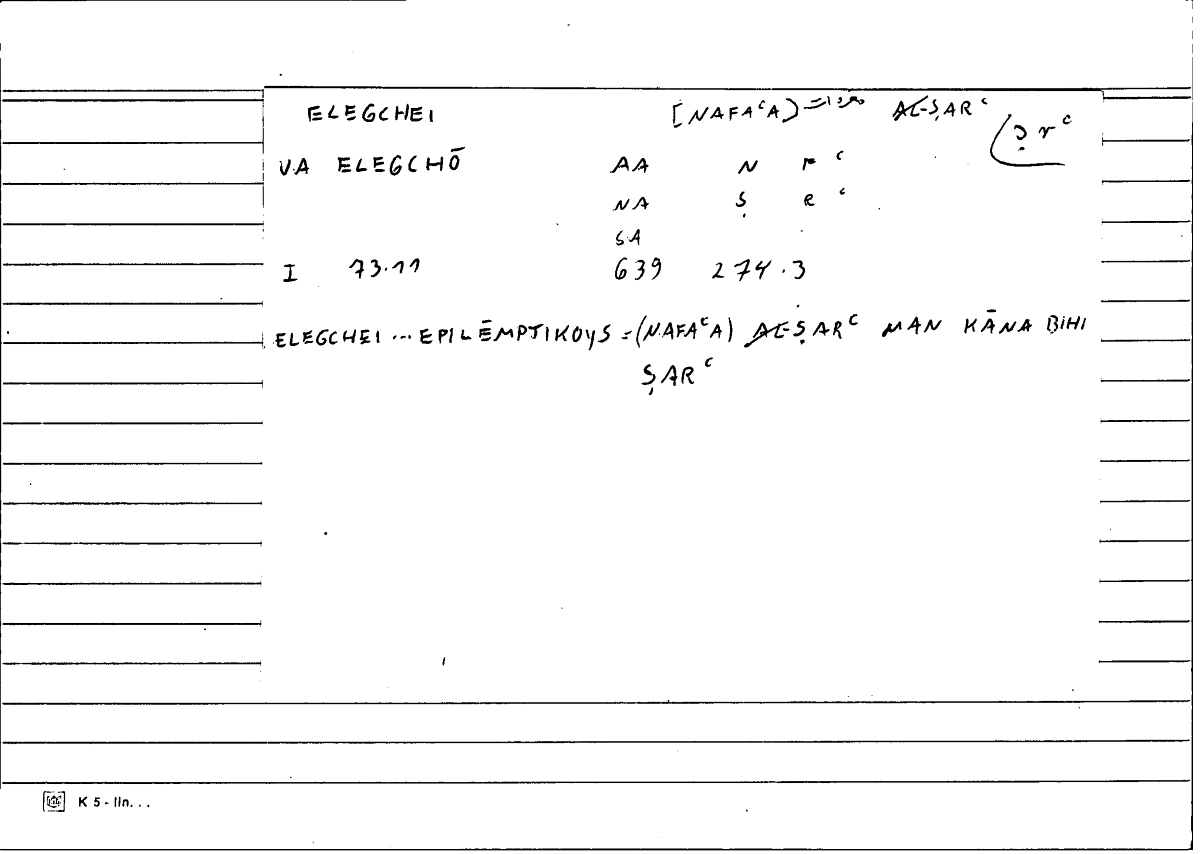 ELEGCHEI [NAFAʿA] AL-ṢARʿ
ṣrʿ
VA ELEGCHŌ AA N F ʿ
NA Ṣ R ʿ
SA
I 73.11 639 274.3
ELEGCHEI ... EPILĒMPTIKOYS = (NAFAʿA) AL-ṢARʿ MAN KĀNA BIHI
ṢARʿ
K 5 - lln. . .